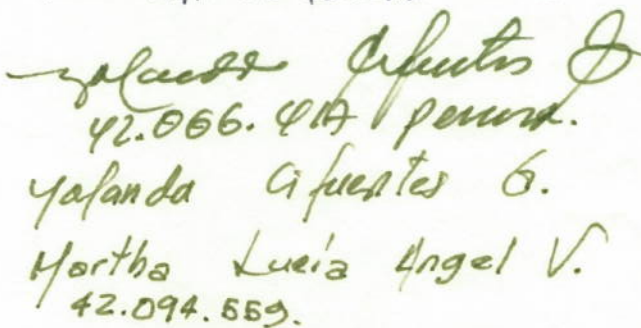 Yolanda Cifuentes G
42.066. Pereira.
Yolanda Cifuentes G.
Martha Lucía Angel V.
42.094.559.